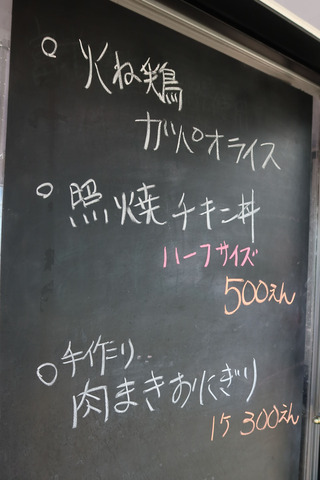 ○ 火ね鶏
ガパオライス
○ 照焼チキン丼
ハーフサイズ
500えん
○ 手作り..
肉まきおにぎり
1ケ 300えん